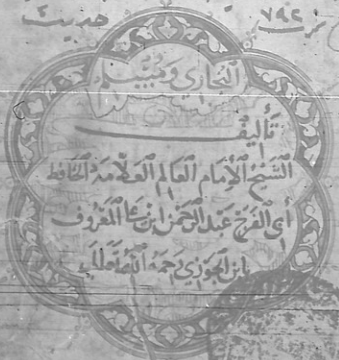 ٧٩٢
حديث
البخاري ومسلم
تأليف
الشيخ الإمام العالم العلامة الحافظ
أبي الفرج عبد الرحمن ابن علي المعروف
بابن الجوزي رحمة الله